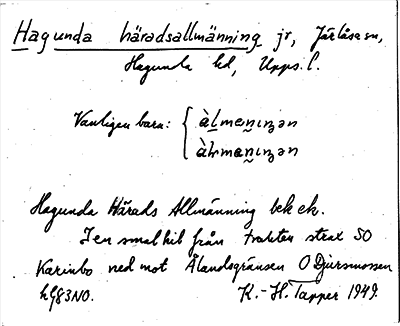 Hagunda häradsallmänning jr, Järlåsa sn,
Hagunda hd, Upps. l.
Vanligen bara: { àlmeṇıʒən
àlmaṇıʒən
Hagunda Härads Allmänning bek ek.
I en smal kil från trakten strax SO
Karinbo ned mot Ålandsgränsen O Djursmossen
K.-H. Tapper 1949.